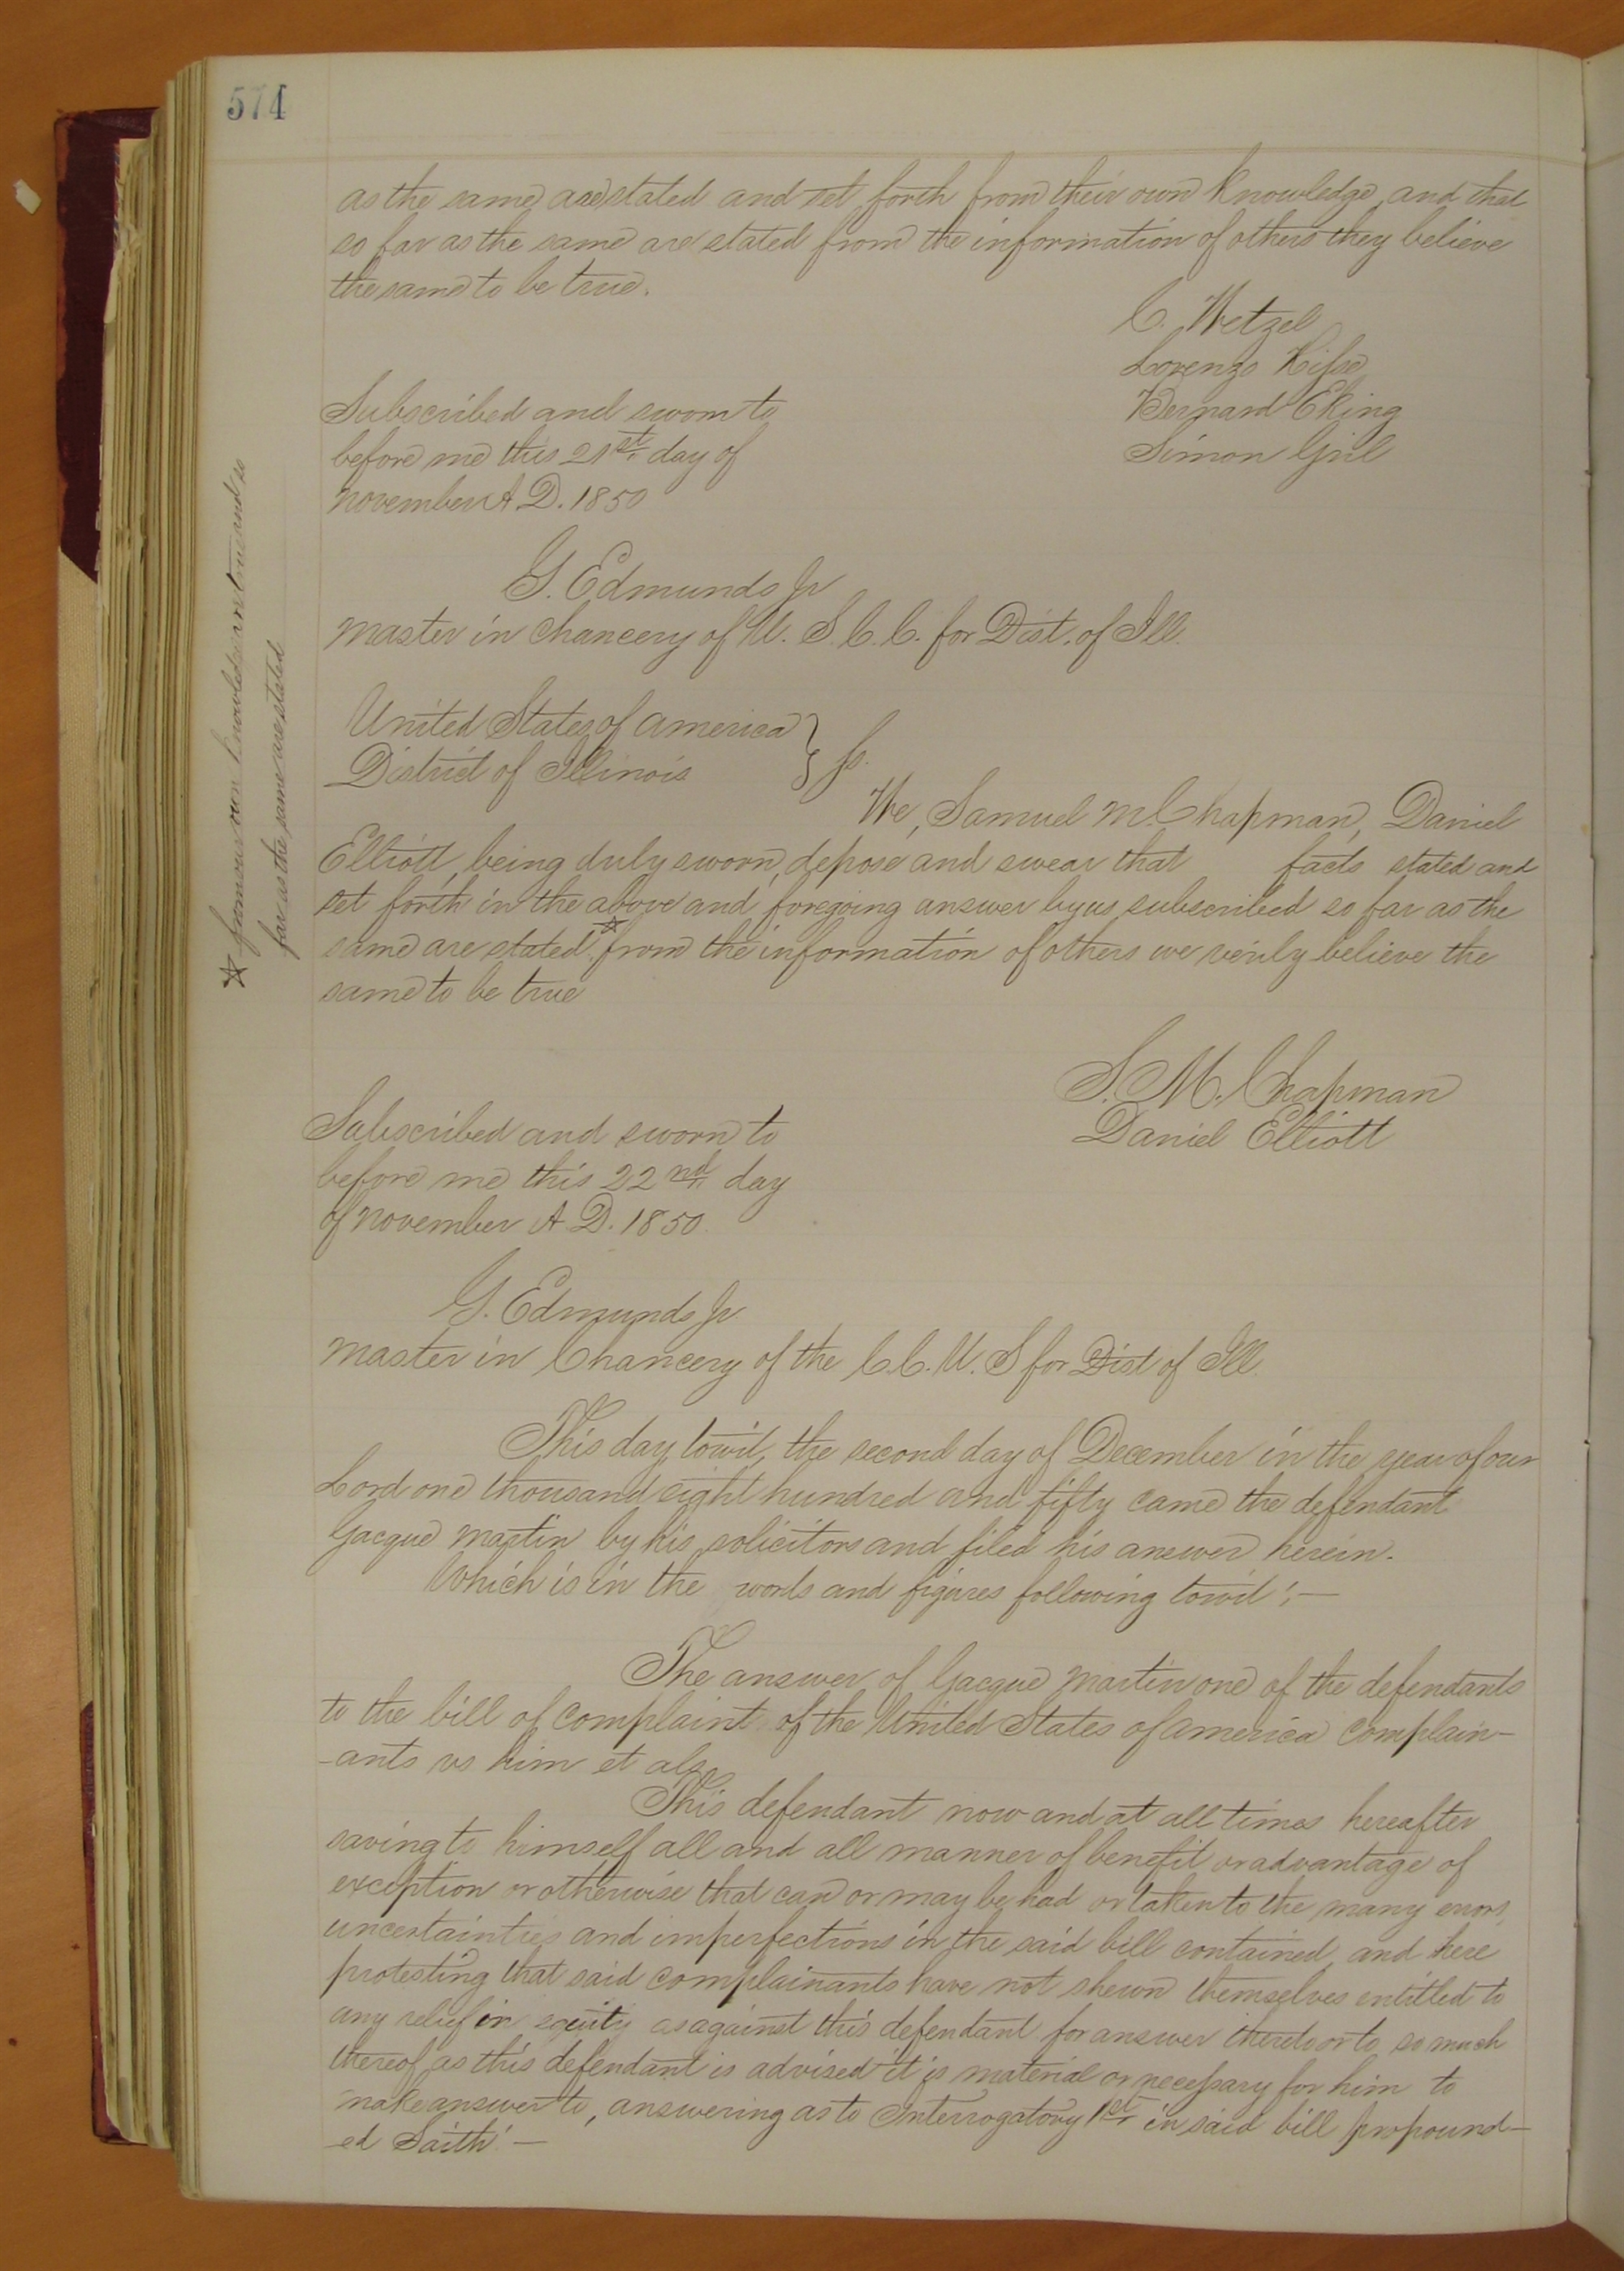 574
as the same are stated and set forth from their own knowledge, and that
so far as the same are stated from the information of others they believe
the same to be true.
C. Wetzel
Lorenzo Kifse
Bernard Eking
Simon Gril
Subscribed and sworn to
before me this 21st. day of
november A D. 1850
G. Edmunds Jr
master in chancery of U. S. C. C. for Dist. of Ill.
United States of america } ss.
District of Illinois
We, Samuel M. Chapman, Daniel
Elliott, being duly sworn, depose and swear that facts stated and
set forth in the above and foregoing answer by us subscribed so far as the
same are stated ☆ from the information of others we verily believe the
same to be true
☆ from our own knowledge are true and so
far as the same are stated
S. M. Chapman
Daniel Elliott
Subscribed and sworn to
before me this 22nd. day
of november A. D. 1850.
G. Edmunds Jr
master in Chancery of the C. C. U. S for Dist of Ill.
This day, towit, the second day of December in the year of our
Lord one thousand eight hundred and fifty came the defendant
Gacque martin by his solicitors and filed his answer herein.
Which is in the words and figures following towit:—
The answer of Gacque martin one of the defendants
to the bill of complaint of the United States of america complain-
-ants vs him et als.
This defendant now and at all times hereafter
saving to himself all and all manner of benefit or advantage of
exception or otherwise that can or may be had or taken to the many errors,
uncertainties and imperfections in the said bill contained, and here
protesting that said complainants have not shewn themselves entitled to
any relief in equity as against this defendant for answer thereto or to so much
thereof as this defendant is advised it is material or necessary for him to
make answer to, answering as to Interrogatory 1st in said bill propound-
-ed Saith:—